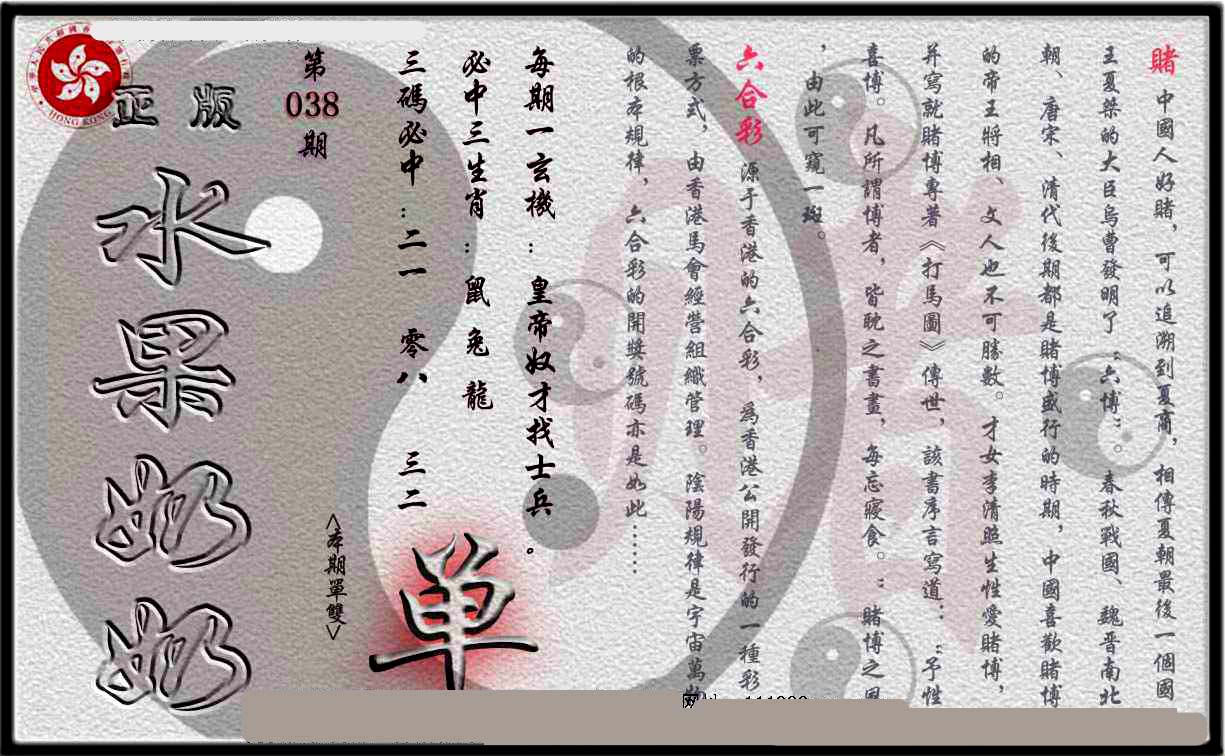 賭 中國人好賭，可以追溯到夏商，相傳夏朝最後一個國
王夏桀的大臣烏曹發明了“六博”。春秋戰國、魏晋南北
朝、唐宋、清代後期都是賭博盛行的時期，中國喜歡賭博
的帝王將相、文人也不可勝數。才女李清照生性愛賭博，
并寫就賭博專著《打馬圖》傳世，該書序言寫道：“予性
喜博。凡所謂博者，皆耽之書晝，每忘寢食。”賭博之風
，由此可窺一斑。
六合彩 源于香港的六合彩，爲香港公開發行的一種彩
票方式，由香港馬會經營組織管理。陰陽規律是宇宙萬物
的根本規律，六合彩的開獎號碼亦是如此……
每期一玄機：皇帝奴才找士兵。
必中三生肖：鼠 兔 龍
三碼必中：二一 零八 三二
单
<本期單雙>
第
038
期
正版
水果奶奶
HONG KONG